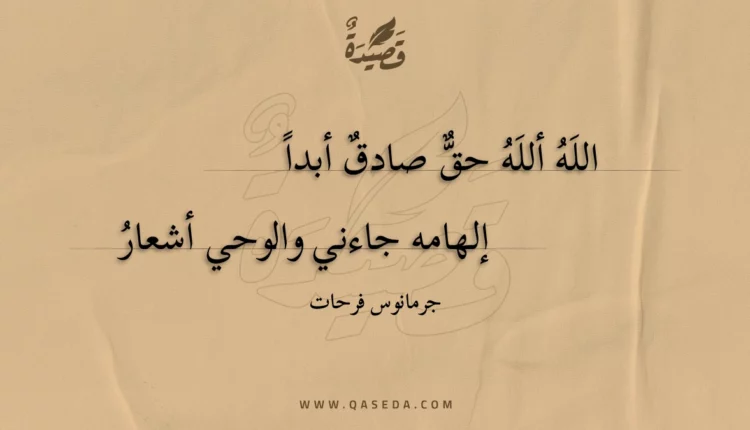 قَصِيدَةٌ
اللَهُ أللَهُ حقٌّ صادقٌ أبداً
إلهامه جاءني والوحي أشعارُ
جرمانوس فرحات
WWW.QASEDA.COM